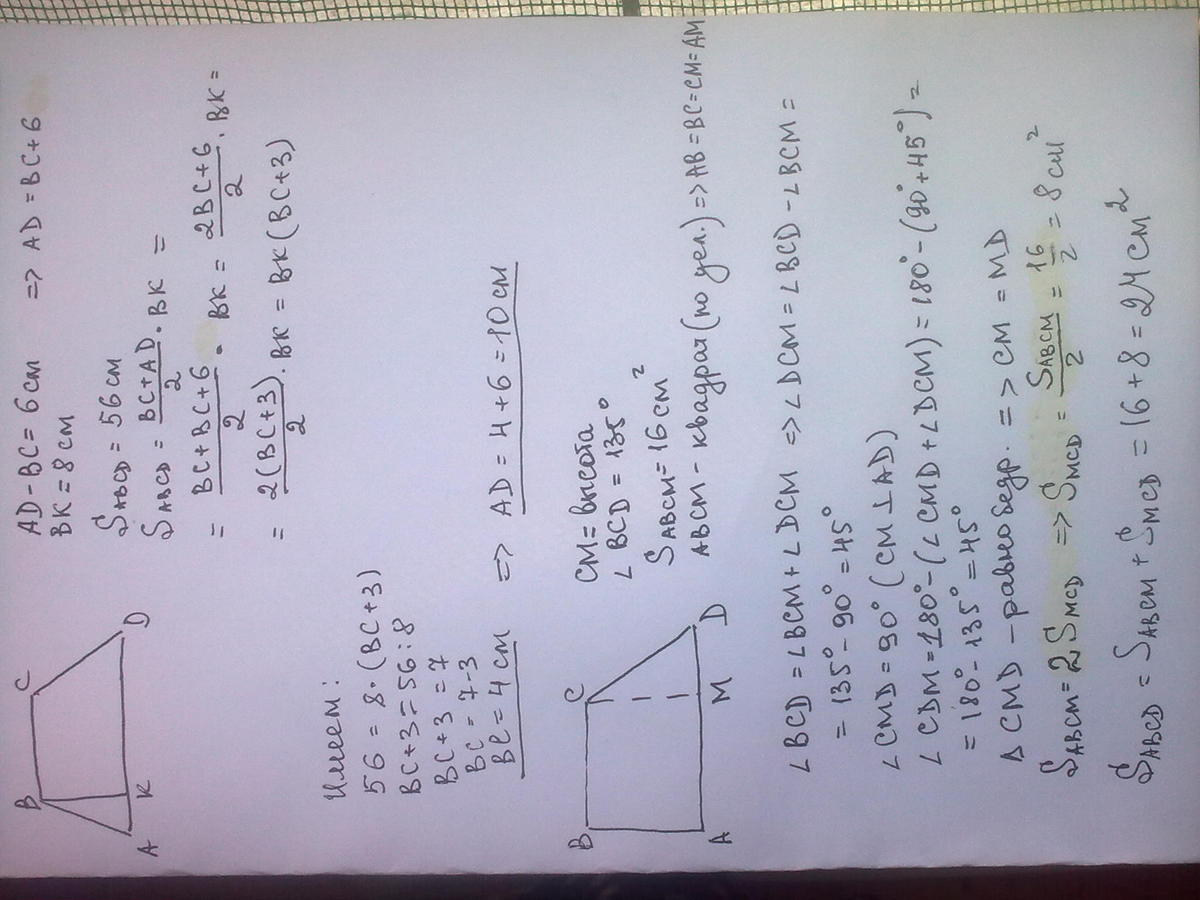 B C
A K D
AD - BC = 6 см => AD = BC + 6
BK = 8 см
S ABCD = 56 см
S ABCD = BC + AD / 2 · BK =
= BC + BC + 6 / 2 · BK = 2BC + 6 / 2 · BK =
= 2(BC + 3) / 2 · BK = BK (BC + 3)
Имеем:
56 = 8 · (BC + 3)
BC + 3 = 56 : 8
BC + 3 = 7
BC = 7 - 3
BC = 4 см => AD = 4 + 6 = 10 см
B C
A M D
CM = высота
∠ BCD = 135°
S ABCM = 16 см²
ABCM - квадрат (по усл.) => AB = BC = CM = AM
∠ BCD = ∠ BCM + ∠ DCM => ∠ DCM = ∠ BCD - ∠ BCM =
= 135° - 90° = 45°
∠ CMD = 90° (CM ⊥ AD)
∠ CDM = 180° - (∠ CMD + ∠ DCM) = 180° - (90° + 45°) =
= 180° - 135° = 45°
Δ CMD - равнобедр. => CM = MD
S ABCM = 2 S MCD => S MCD = S ABCM / 2 = 16 / 2 = 8 см²
S ABCD = S ABCM + S MCD = 16 + 8 = 24 см²